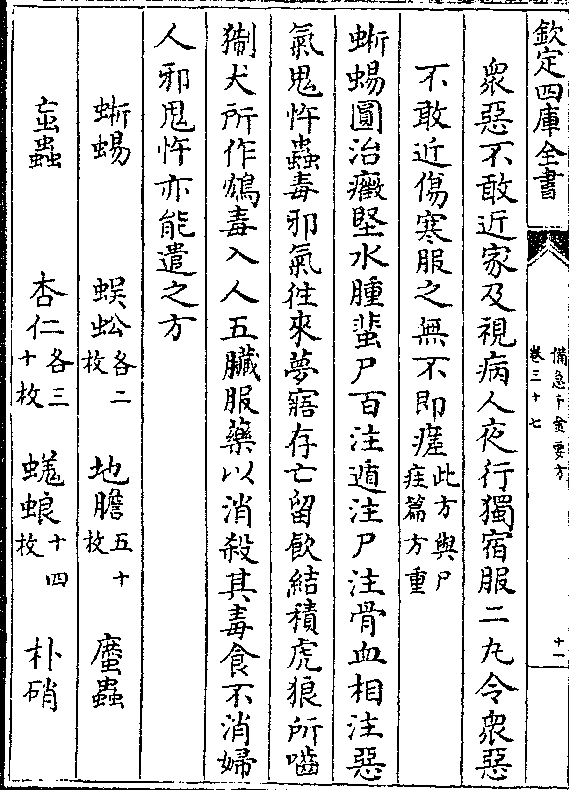 欽定四庫全書
備急千金要方
卷三十七
十一
衆惡不敢近家及視病人夜行獨宿服二丸令衆惡
不敢近傷寒服之無不即瘥此方與尸疰篇方重
蜥蜴圓治癥堅水腫蜚尸百注遁注尸注骨血相注惡
氣鬼忤蟲毒邪氣往來夢寤存亡留飲結積虎狼所嚙
猘犬所作鴆毒入人五臟服藥以消殺其毒食不消婦
人邪鬼忤亦能遣之方
蜥蜴 蜈蚣各二枚 地膽五十枚 䗪蟲
䖟蟲 杏仁各三十枚 蜣蜋十四枚 朴硝